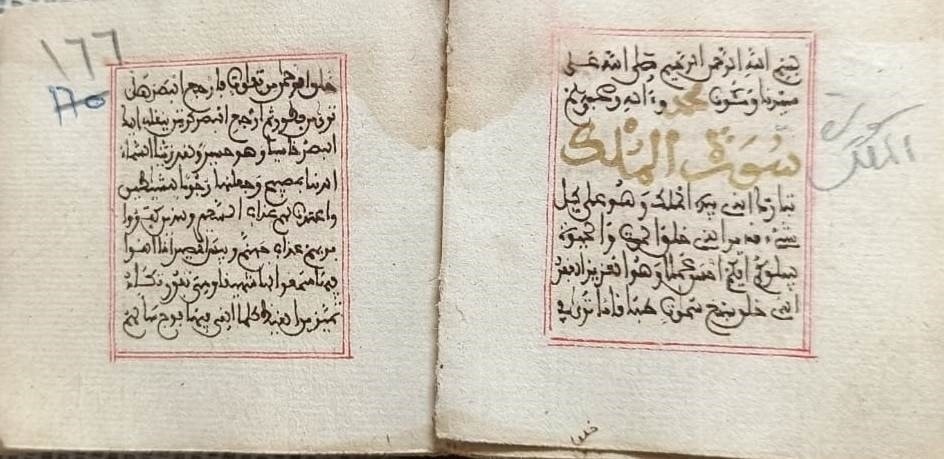 بسم الله الرحمن الرحيم صلى الله على
سيدنا ومولانا محمد وءاله وصحبه
سورة الملك
تبارك الذي بيده الملك وهو على كل
شيء قدير الذي خلق الموت والحيوة
ليبلوكم أيكم أحسن عملا وهو العزيز الغفور
الذي خلق سبع سموت طباقا ما ترى في
خلق
سورة
الملك
١٦٦
خلق الرحمن من تفاوت فارجع البصر هل
ترى من فطور ثم ارجع البصر كرتين ينقلب اليك
البصر خاسئا وهو حسير ولقد زينا السماء
الدنيا بمصبيح وجعلنها رجوما للشيطين
واعتدنا لهم عذاب السعير وللذين كفروا
بربهم عذاب جهنم وبيس المصير اذا القوا
فيها سمعوا لها شهيقا وهي تفور تكاد
تميز من الغيظ كلما القي فيها فوج سالهم